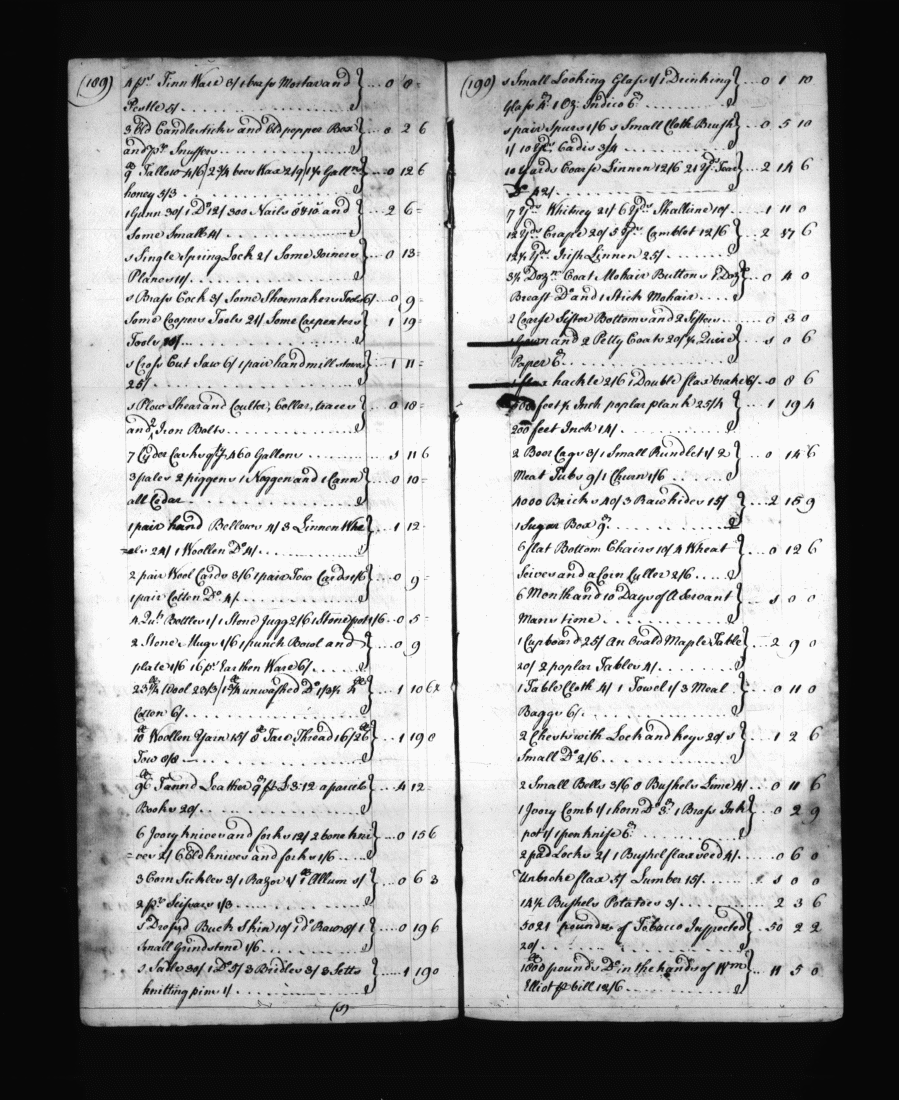 (189)
4 ps Tinn Ware 3/ 1 brass Mortar and } ...0 8=
Pestle 5/
3 Old Candlesticks and Old pepper Box } ...0 2 6
and pr. Snuffers
9 lb Tallow 4/6 / 2 3/4 bees Wax 2/9 / 1 1/4 Galln } ...0 12 6
honey 5/3
1 Gunn 30/ 1 Do 12/ 300 Nails 8d & 10d and } ...2 6=
Some Small 4/
1 Single Spring Lock 2/ Some Joiners } ...0 13=
Planes 11/
1 Brass Cock 3/ Some Shoemakers Tools 6/ ..0 9=
Some Coopers Tools 21/ Some Carpenters } ...1 19=
Tools
1 Cross Cut Saw 6/ 1 pair hand mill stones } ...1 11=
25/
1 Plow Shear and Coulter, Collar, traces } ...0 18=
and 2 Iron Bolts
7 Cyder Casks qty 460 Gallons ...5 11 6
3 pales 2 piggens 1 Noggen and 1 Cann } ...0 10=
all Cedar
1 pair hand Bellows 4/ 3 Linnen Whe } ...1 12=
=els 24/ 1 Woollen Do 4/
2 pair Wool Cards 3/6 1 pair Tow Cards 1/6 } ...0 9=
1 pair Cotten Do 4/
4 Qut Bottles 1/ 1 Stone Jugg 2/6 1 Stone pot 1/6 ..0 5=
2 Stone Mugs 1/6 1 punch Bowl and } ...0 9
plate 1/6 16 ps Earthen Ware 6/
23 1/4 lb Wool 23/3 / 1 3/4 lb unwashed Do 1/3 1/2 4 lb } ...1 10 6 1/2
Cotten 6/
10 lb Woollen Yarn 15/ 8 lb Tow Thread 16/ 26 lb } ...1 19 0
Tow 8/8
96 lb Tannd Leather 9d pr £3:12 a parcel } ...4 12=
Books 20/
6 Ivory knives and forks 12/ 2 bone kni } ...0 15 6
=ves 2/ 6 Old knives and forks 1/6
3 Corn Sickles 3/ 1 Razor 1/ 1 lb Allum 1/ } ...0 6 3
2 pr. Scissars 1/3
1 Dressd Buck Skin 10/ 1 do Raw 8/ 1 } ...0 19 6
Small Grindstone 1/6
1 Sadle 30/ 1 Do 5/ 3 Bridles 3/ 3 Setts } ...1 19 0
knitting pins 1/
(5)
(190)
1 Small Looking Glass 1/ 1 Drinking } ...0 1 10
Glass 4d 1 Oz: Indico 6d
1 pair Spurs 1/6 1 Small Cloth Brush } ...0 5 10
1/ 10 Yds Cadis 3/4
10 Yards Coarse Linnen 12/6 21 Yds Fear } ...2 14 6
Do 42/
7 Yds Whitney 21/ 6 Yds Shalline 10/ ...1 11 0
12 Yds Crape 20/ 5 Yds Camblet 12/6 } ...2 17 6
12 1/2 Yds Irish Linnen 25/
3 1/2 Dozn Coat Mohair Buttons 1 Dozn } ...0 4 0
Breast Do and 1 Stick Mohair
2 Coarse Sifter Bottoms and 2 Sifters ...0 3 0
1 Gown and 2 Petty Coats 20/ 1/4 Quire } ...1 0 6
Paper 6d
1 flax hackle 2/6 1 Double flax brake 6/ ..0 8 6
700 feet 1/2 Inch poplar plank 25/4 } ...1 19 4
200 feet Inch 14/
2 Beer Cags 3/ 1 Small Rundlet 1/ 2 } ...0 14 6
Meat Tubs 9/ 1 Churn 1/6
4000 Bricks 40/ 3 Raw hides 15/ } ...2 15 9
1 Sugar Box 9d
6 flat Bottom Chairs 10/ 4 Wheat } ...0 12 6
Seives and a Corn Culler 2/6
6 Month and 10 Days of A Servant } ...5 0 0
Mans time
1 Cupboard 25/ An Ovald Maple Table } ...2 9 0
20/ 2 poplar Tables 4/
1 Table Cloth 4/ 1 Towel 1/ 3 Meal } ...0 11 0
Baggs 6/
2 Chests with Lock and keys 20/ 1 } ...1 2 6
Small Do 2/6
2 Small Bells 3/6 8 Bushels Lime 4/ ..0 11 6
1 Ivory Comb 1/ 1 horn Do 3d 1 Brass Ink } ...0 2 9
pot 1/ 1 pen knife 6d
2 pad Locks 2/ 1 Bushel flax seed 4/ ...0 6 0
Unbroke flax 5/ Lumber 15/ ...1 0 0
14 1/2 Bushels Potatoes 3/ ...2 3 6
5021 pounds of Tobacco Inspected } ...50 2 2
20/
1800 lb pounds Do in the hands of Wm } ...11 5 0
Elliot pr bill 12/6